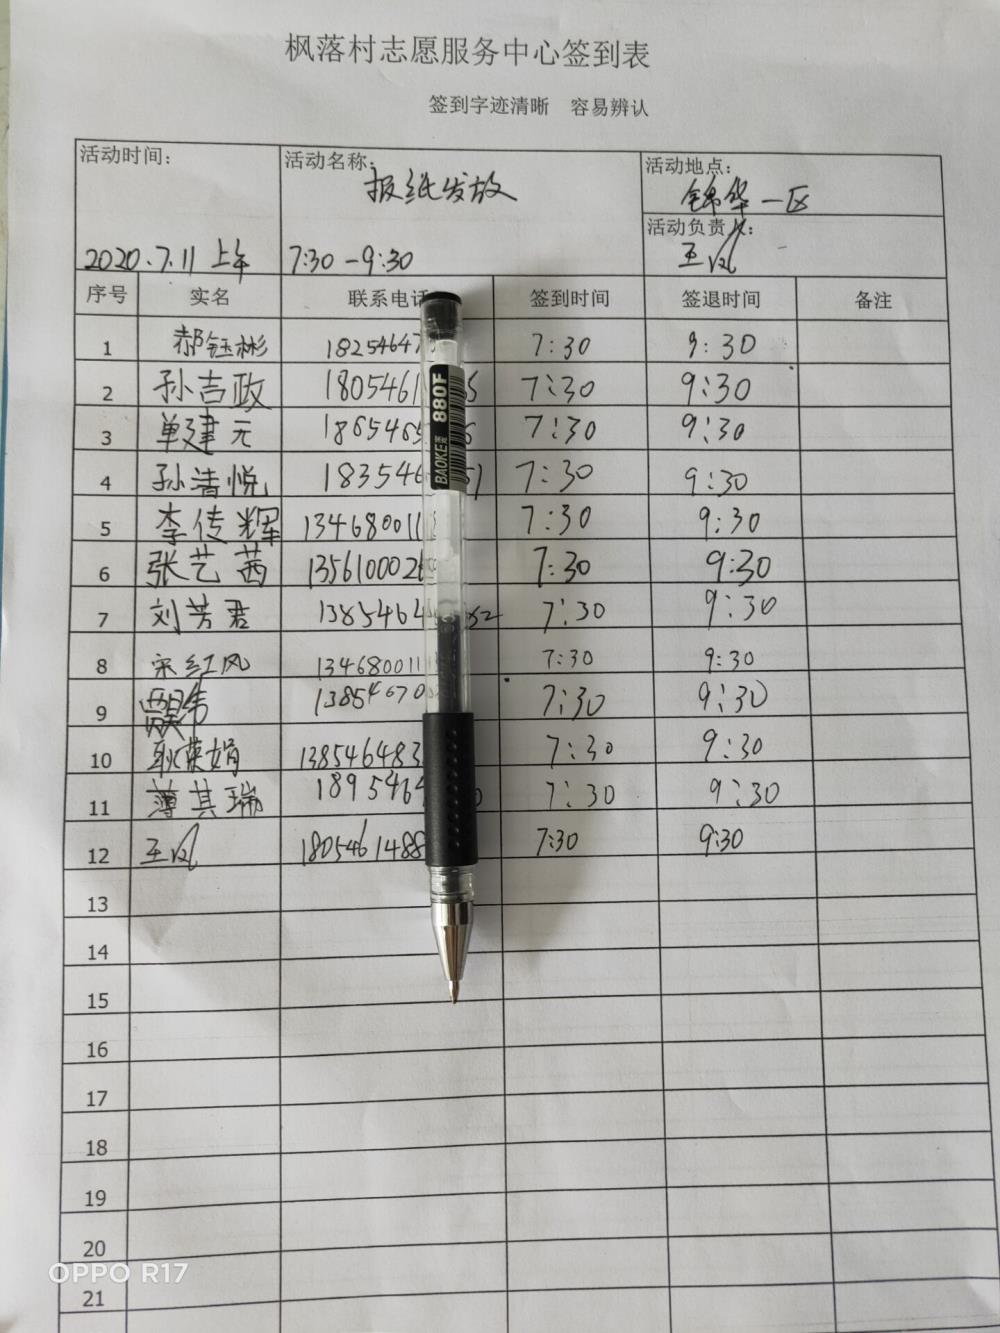 枫落村志愿服务中心签到表
签到字迹清晰 容易辨认
活动时间: 2020.7.11 上午 7:30-9:30
活动名称: 报纸发放
活动地点: 锦华一区
活动负责人: 王凤
序号 实名 联系电话 签到时间 签退时间 备注
1 郝钰彬 18254647 7:30 9:30
2 孙吉政 1805461 5 7:30 9:30
3 单建元 1865465 6 7:30 9:30
4 孙清悦 183546 51 7:30 9:30
5 李传辉 134680011 7:30 9:30
6 张艺茜 135610002 7:30 9:30
7 刘芳君 13854646 52 7:30 9:30
8 宋红风 134680011 7:30 9:30
9 13854670 7:30 9:30
10 耿荣娟 138546483 7:30 9:30
11 薄其瑞 1895464 0 7:30 9:30
12 王凤 1805461488 7:30 9:30
13
14
15
16
17
18
19
20
21
BAOKE 宝克 880F
OPPO R17